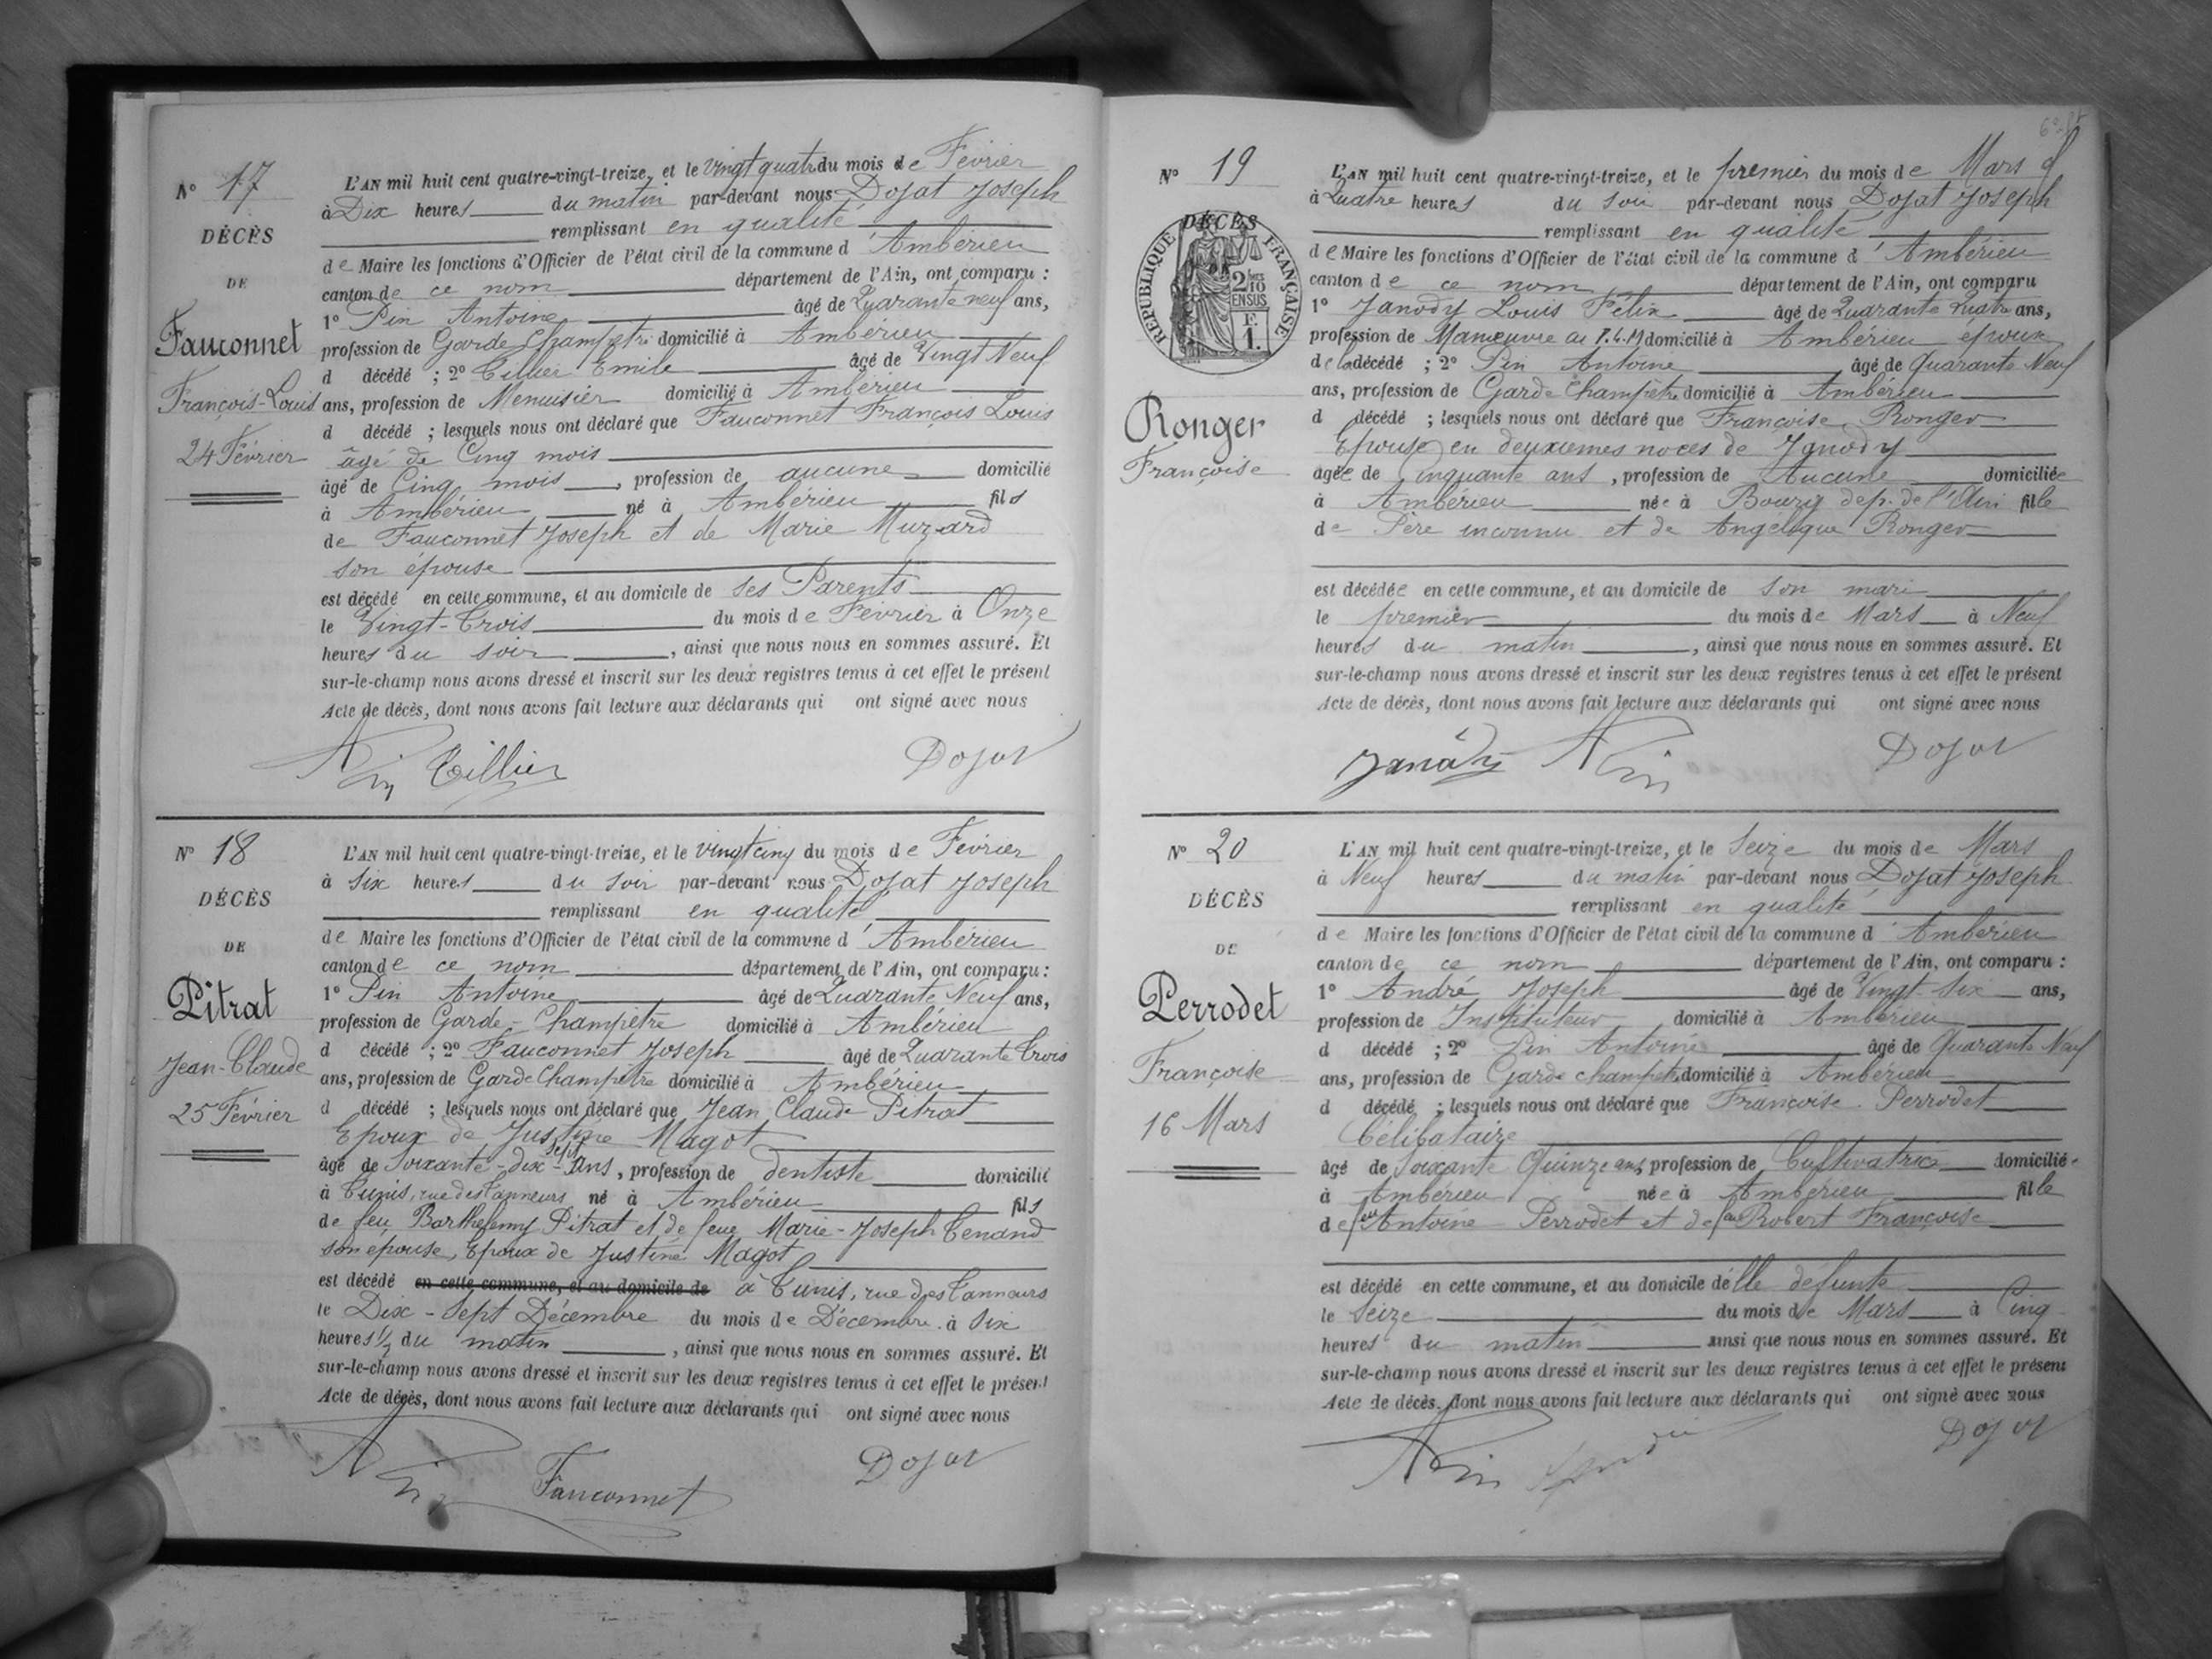 N° 17
DÉCÈS
DE
Fauconnet
François-Louis
24 Février
L'AN mil huit cent quatre-vingt-treize, et le vingt quatre du mois de Février
à Dix heures du matin par-devant nous Dojat Joseph
remplissant en qualité
de Maire les fonctions d'Officier de l'état civil de la commune d'Ambérieu
canton de ce nom département de l'Ain, ont comparu :
1° Pin Antoine âgé de Quarante neuf ans,
profession de Garde Champêtre domicilié à Ambérieu
d décédé ; 2° Tillier Emile âgé de Vingt Neuf
ans, profession de Menuisier domicilié à Ambérieu
d décédé ; lesquels nous ont déclaré que Fauconnet François Louis
âgé de Cinq mois
âgé de Cinq mois, profession de aucune domicilié
à Ambérieu né à Ambérieu fils
de Fauconnet Joseph et de Marie Muzard
son épouse
est décédé en cette commune, et au domicile de ses Parents
le Vingt-Trois du mois de Février à Onze
heures du soir, ainsi que nous nous en sommes assuré. Et
sur-le-champ nous avons dressé et inscrit sur les deux registres tenus à cet effet le présent
Acte de décès, dont nous avons fait lecture aux déclarants qui ont signé avec nous
Pin Tillier Dojat
N° 18
DÉCÈS
DE
Pitrat
Jean-Claude
25 Février
L'AN mil huit cent quatre-vingt-treize, et le vingt cinq du mois de Février
à Six heures du soir par-devant nous Dojat Joseph
remplissant en qualité
de Maire les fonctions d'Officier de l'état civil de la commune d'Ambérieu
canton de ce nom département de l'Ain, ont comparu :
1° Pin Antoine âgé de Quarante Neuf ans,
profession de Garde-Champêtre domicilié à Ambérieu
d décédé ; 2° Fauconnet Joseph âgé de Quarante Trois
ans, profession de Garde Champêtre domicilié à Ambérieu
d décédé ; lesquels nous ont déclaré que Jean Claude Pitrat
Epoux de Justine Magot
âgé de Soixante-dix-sept ans, profession de dentiste domicilié
à Tunis, rue des Tanneurs né à Ambérieu fils
de feu Barthelemy Pitrat et de feue Marie-Joseph Tenand
son épouse, Epoux de Justine Magot
est décédé en cette commune, et au domicile de à Tunis, rue des Tanneurs
le Dix-Sept Décembre du mois de Décembre à Six
heures 1/2 du matin, ainsi que nous nous en sommes assuré. Et
sur-le-champ nous avons dressé et inscrit sur les deux registres tenus à cet effet le présent
Acte de décès, dont nous avons fait lecture aux déclarants qui ont signé avec nous
Pin Fauconnet Dojat
N° 19
RÉPUBLIQUE FRANÇAISE
DÉCÈS
2/10 EN SUS
F. 1.
Ronger
Françoise
L'AN mil huit cent quatre-vingt-treize, et le premier du mois de Mars
à Quatre heures du soir par-devant nous Dojat Joseph
remplissant en qualité
de Maire les fonctions d'Officier de l'état civil de la commune d'Ambérieu
canton de ce nom département de l'Ain, ont comparu
1° Janody Louis Félix âgé de Quarante Quatre ans,
profession de Manœuvre au P.L.M domicilié à Ambérieu époux
de la décédé ; 2° Pin Antoine âgé de Quarante Neuf
ans, profession de Garde Champêtre domicilié à Ambérieu
d décédé ; lesquels nous ont déclaré que Françoise Ronger
Epouse en deuxièmes noces de Janody
âgée de cinquante ans, profession de Aucune domiciliée
à Ambérieu née à Bourg dép. de l'Ain fille
de Père inconnu et de Angélique Ronger
est décédée en cette commune, et au domicile de son mari
le premier du mois de Mars à Neuf
heures du matin, ainsi que nous nous en sommes assuré. Et
sur-le-champ nous avons dressé et inscrit sur les deux registres tenus à cet effet le présent
Acte de décès, dont nous avons fait lecture aux déclarants qui ont signé avec nous
Janody Pin Dojat
N° 20
DÉCÈS
DE
Perrodet
Françoise
16 Mars
L'AN mil huit cent quatre-vingt-treize, et le Seize du mois de Mars
à Neuf heures du matin par-devant nous Dojat Joseph
remplissant en qualité
de Maire les fonctions d'Officier de l'état civil de la commune d'Ambérieu
canton de ce nom département de l'Ain, ont comparu :
1° André Joseph âgé de Vingt-Six ans,
profession de Instituteur domicilié à Ambérieu
d décédé ; 2° Pin Antoine âgé de Quarante Neuf
ans, profession de Garde champêtre domicilié à Ambérieu
d décédé ; lesquels nous ont déclaré que Françoise Perrodet
Célibataire
âgé de Soixante Quinze ans, profession de Cultivatrice domiciliée
à Ambérieu née à Ambérieu fille
de feu Antoine Perrodet et de feue Robert Françoise
est décédé en cette commune, et au domicile de lle défunte
le Seize du mois de Mars à Cinq
heures du matin ainsi que nous nous en sommes assuré. Et
sur-le-champ nous avons dressé et inscrit sur les deux registres tenus à cet effet le présent
Acte de décès, dont nous avons fait lecture aux déclarants qui ont signé avec nous
Pin Dojat